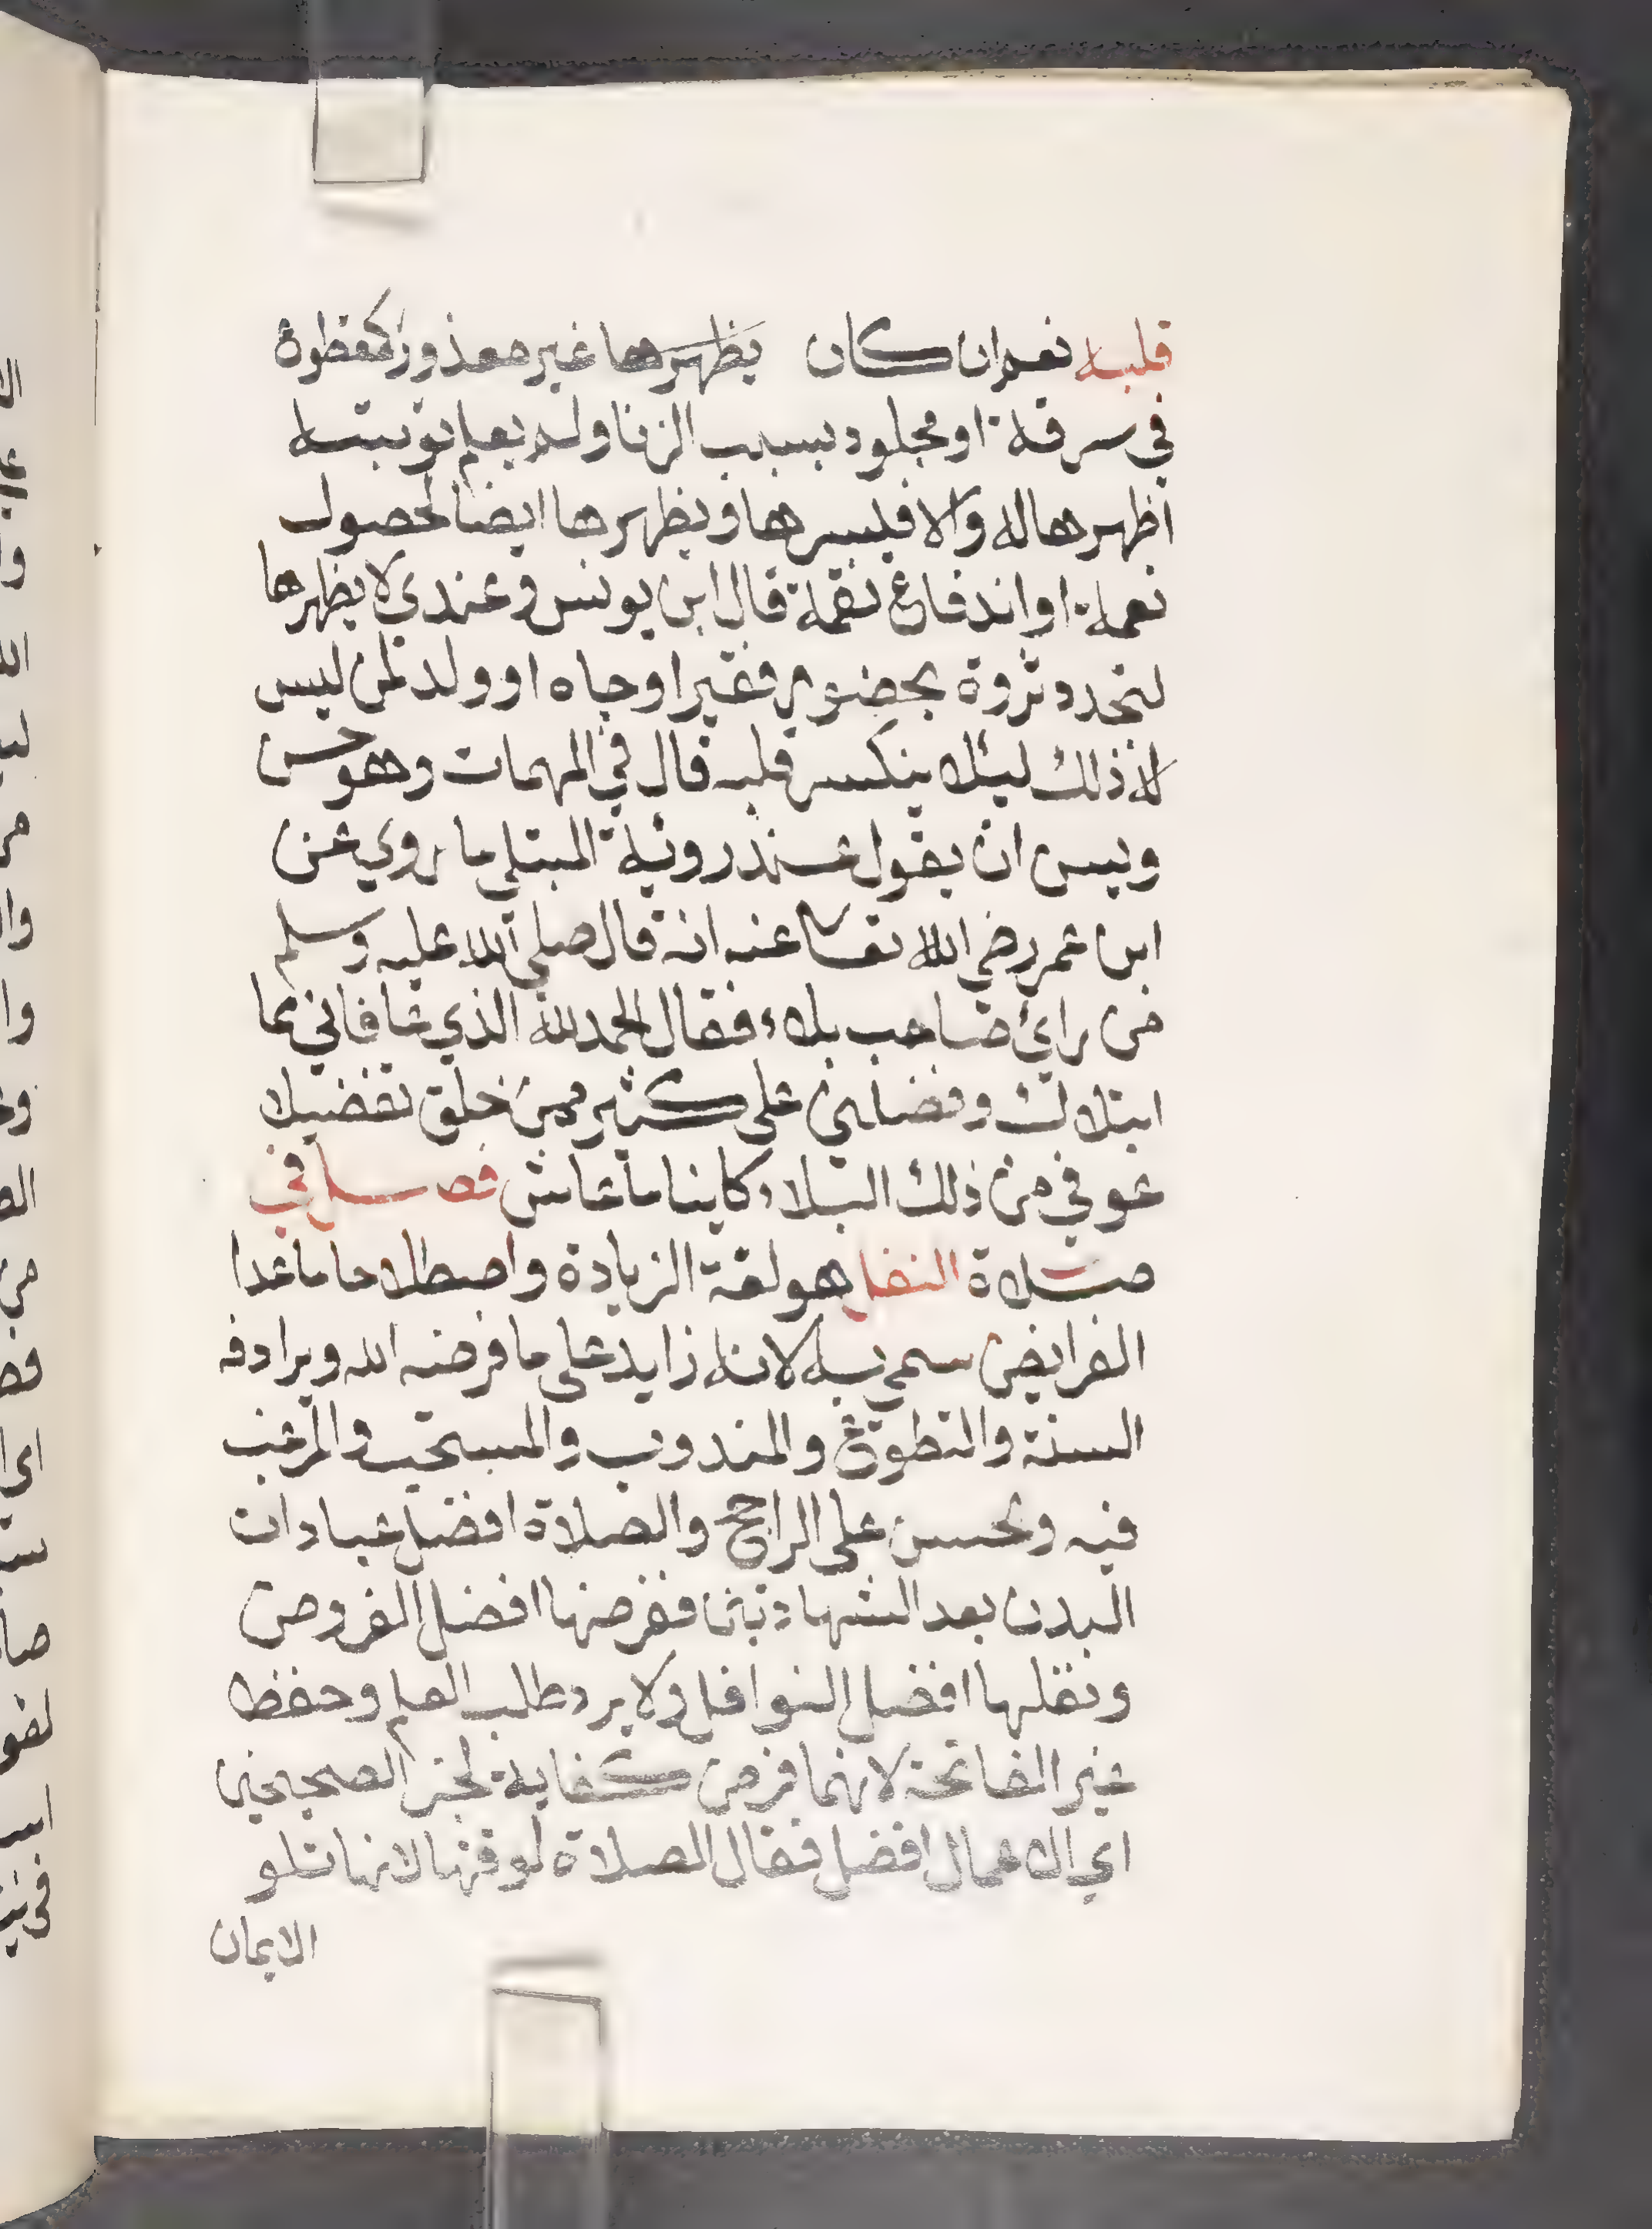 قلبه نعم ان كان يظهرها غير معذور كمقطوع
في سرقة او مجلود بسبب الزنا ولم يعلم توبته
اظهرها له والا فليسرها ويظهرها ايضا لحصول
نعمة او اندفاع نقمة قال ابن يونس وعندي لا يظهرها
لتجدد ثروة بحضور فقير او جاه او ولد لمن ليس
لا ذلك ليلا ينكسر قلبه قال في المهمات وهو حسن
ويسن ان يقول عند روية المبتلي ما روي عن
ابن عمر رضي الله تعالى عنه انه قال صلى الله عليه وسلم
من راي صاحب بلاء فقال الحمد لله الذي عافاني مما
ابتلاك وفضلني على كثير ممن خلق تفضيلا
عوفي من ذلك البلاء كاينا ما عاش فصل في
صلاة النفل هو لغة الزيادة واصطلاحا ما عدا
الفرايض سمي به لانه زايد على ما فرضه الله ويرادفه
السنة والتطوع والمندوب والمستحب والمرغب
فيه وتحسن على الراجح والصلاة افضل عبادات
البدن بعد الشهادتين ففرضها افضل الفروض
ونفلها افضل النوافل ولا يرد طلب العلم وحفظ
غير الفاتحة لانهما فرض كفاية لخبر الصحيحين
اي الاعمال افضل فقال الصلاة لوقتها لانها تتلو
الايمان